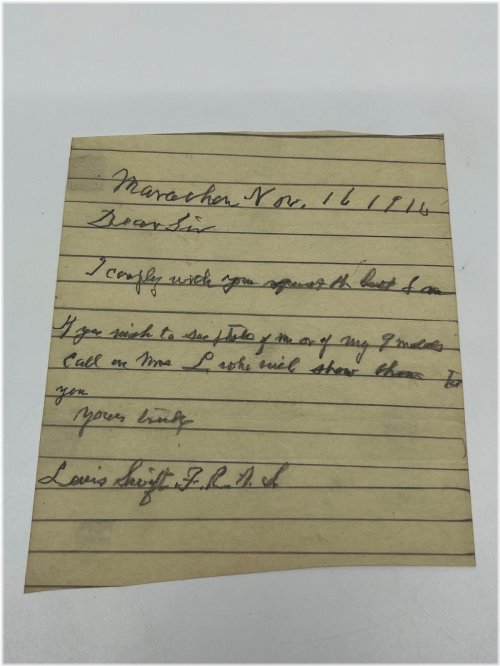 Marathon Nov. 16 1910
Dear Sir
I comply with your request the best I can
If you wish to see photo of me or of my 9 medals
Call on Mrs L. who will show them to
you
yours truly
Lewis Swift F. R. A. S.